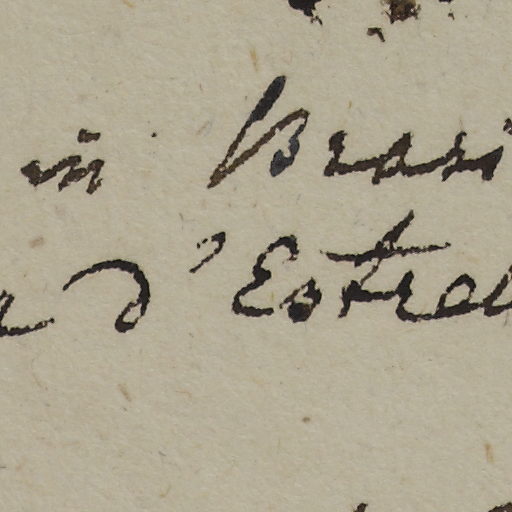 in Brasi
a d'Estrel